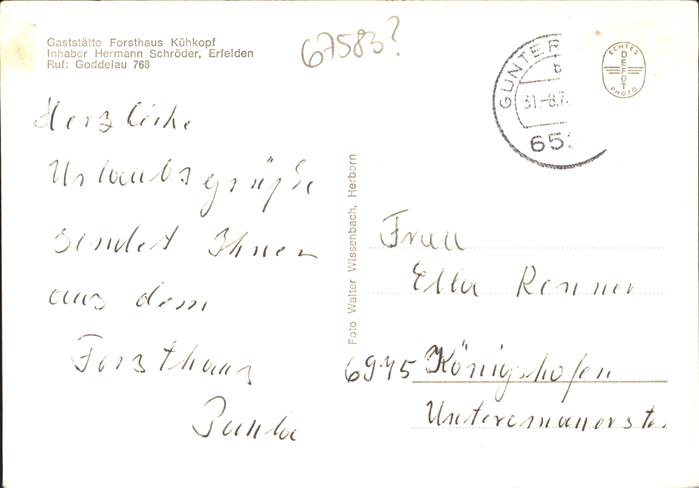 Gaststätte Forsthaus Kühkopf
Inhaber Hermann Schröder, Erfelden
Ruf: Goddelau 768
67583?
GUNTER
31.-8.7
65
ECHTES
DEFOT
PHOTO
Herzliche
Urlaubsgrüße
sendet Ihnen
aus dem
Forsthaus
Foto Walter Wissenbach, Herborn
Frau
Ella Renner
6975 Königshofen